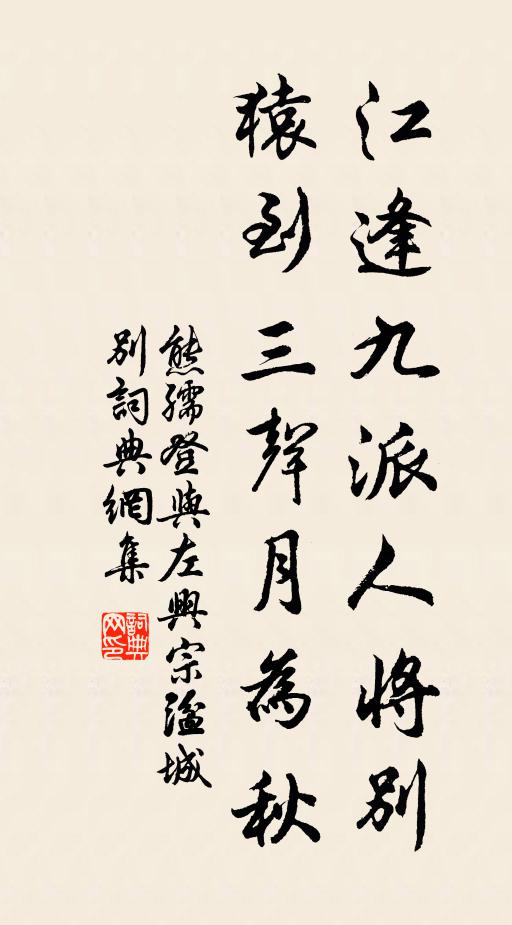 江逢九派人將別
猿到三聲月為秋
熊孺登與左興宗湓城
別詞典網集
詞典網印